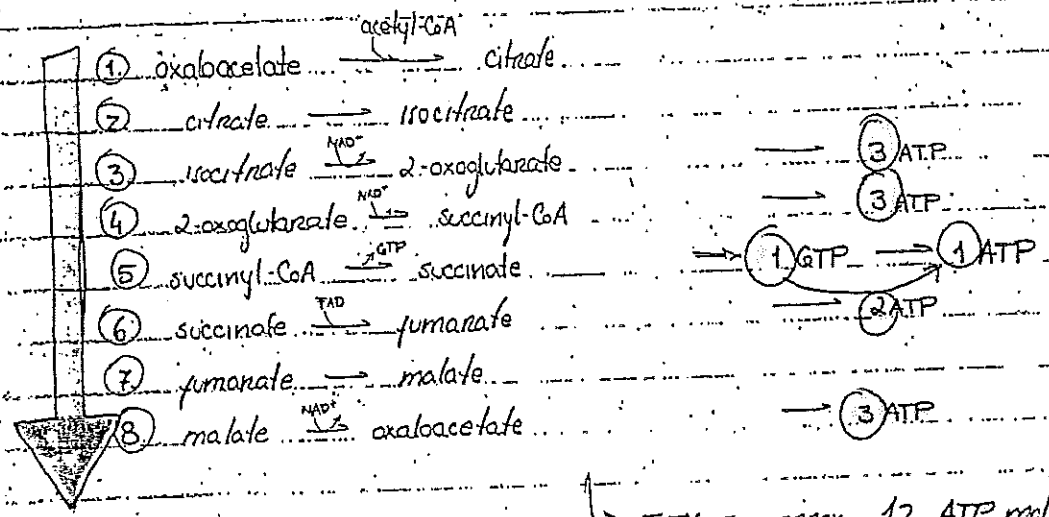 acetyl-CoA
1. oxaloacelate → citrate
2 citrate → isocitrate
3 isocitrate NAD+ → 2-oxoglutarate → 3 ATP
4 2-oxoglutarate NAD+ → succinyl-CoA → 3 ATP
5 succinyl-CoA → GTP succinate → 1 GTP → 1 ATP
6 succinate FAD → fumarate → 2 ATP
7. fumarate → malate
8 malate NAD+ → oxaloacetate → 3 ATP
12 ATP mol